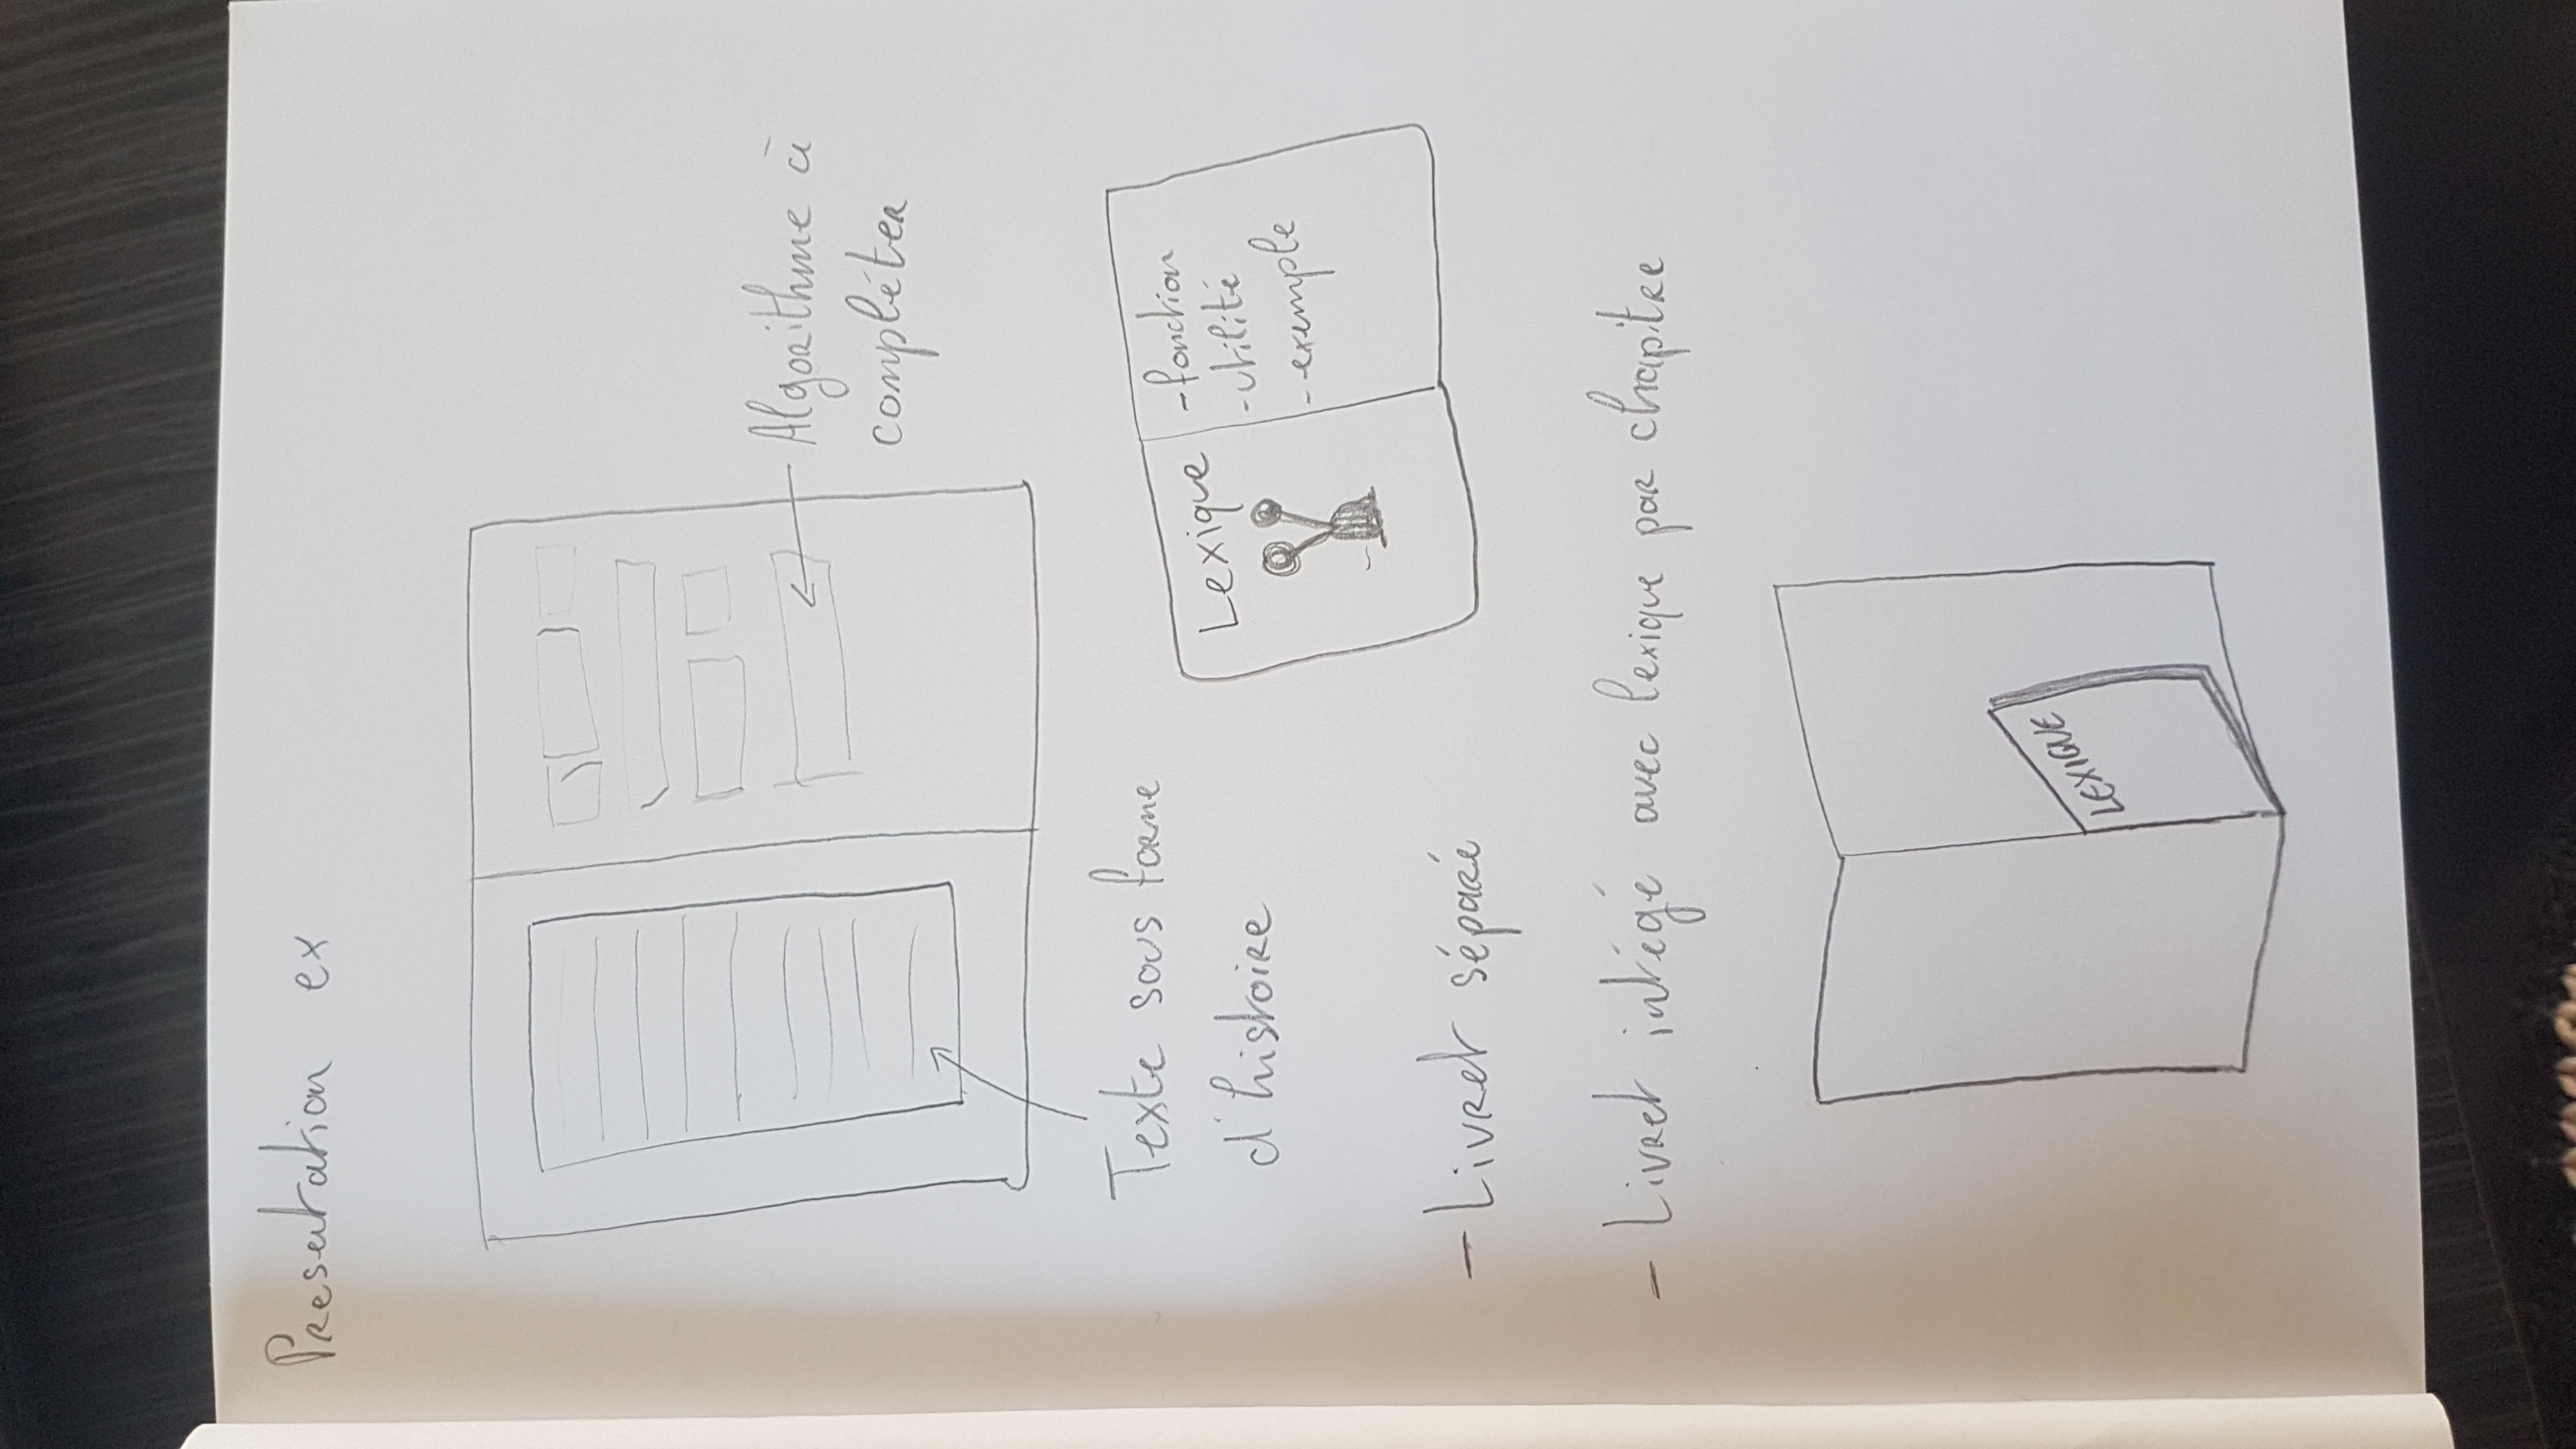 Presentation ex
Algorithme à
compléter
Texte sous forme
d'histoire
Lexique
- fonction
- utilité
- exemple
- Livret séparé
- Livret intégé avec lexique par chapitre
LEXIQUE